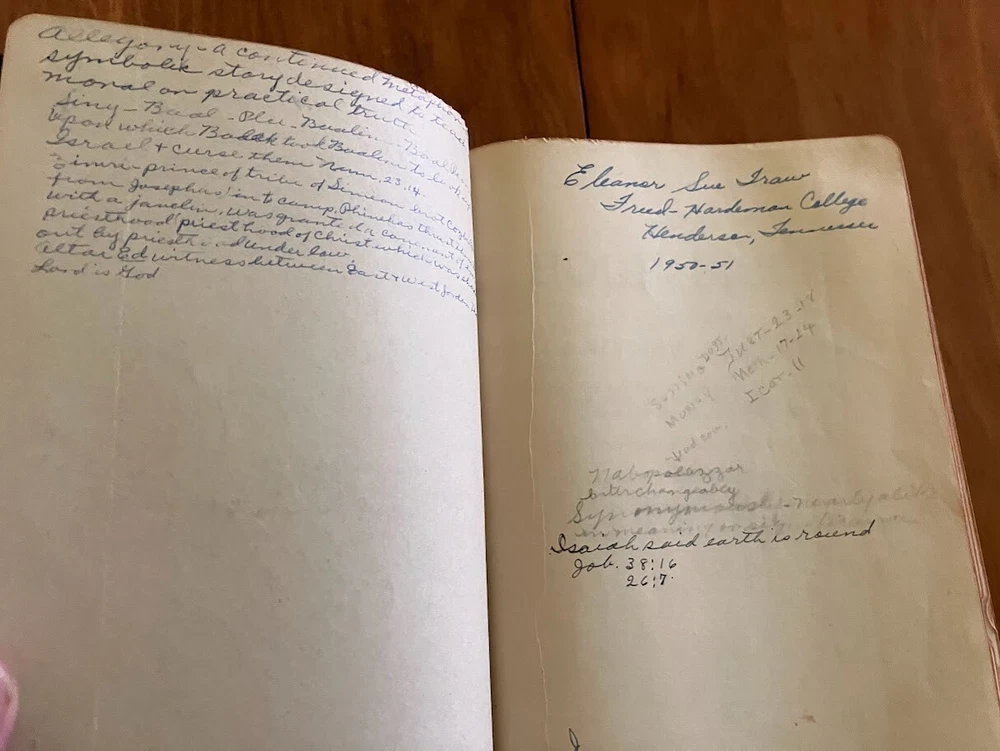 Allegory - a continued metaphor
symbolic story designed to teach
moral or practical truth
upon which Balak took Baalim to look
Israel & curse them Num. 23, 14.
Zimri - prince of tribe of Simeon brot Cozbi
from Josephus) in to camp. Phinehas thrust
with a javelin, was granted a covenant of
priesthood (priesthood of Christ which was
out by priesthood under law
altar Ed witness between East & West Jordan
Lord is God
Eleanor Sue Traw
Freed-Hardeman College
Henderson, Tennessee
1950-51
23-18
17-24
I Cor. 11
Nabopolazzar
interchangeably
nearly alike
in meaning
Isaiah said earth is round
Job. 38:16
26:7.